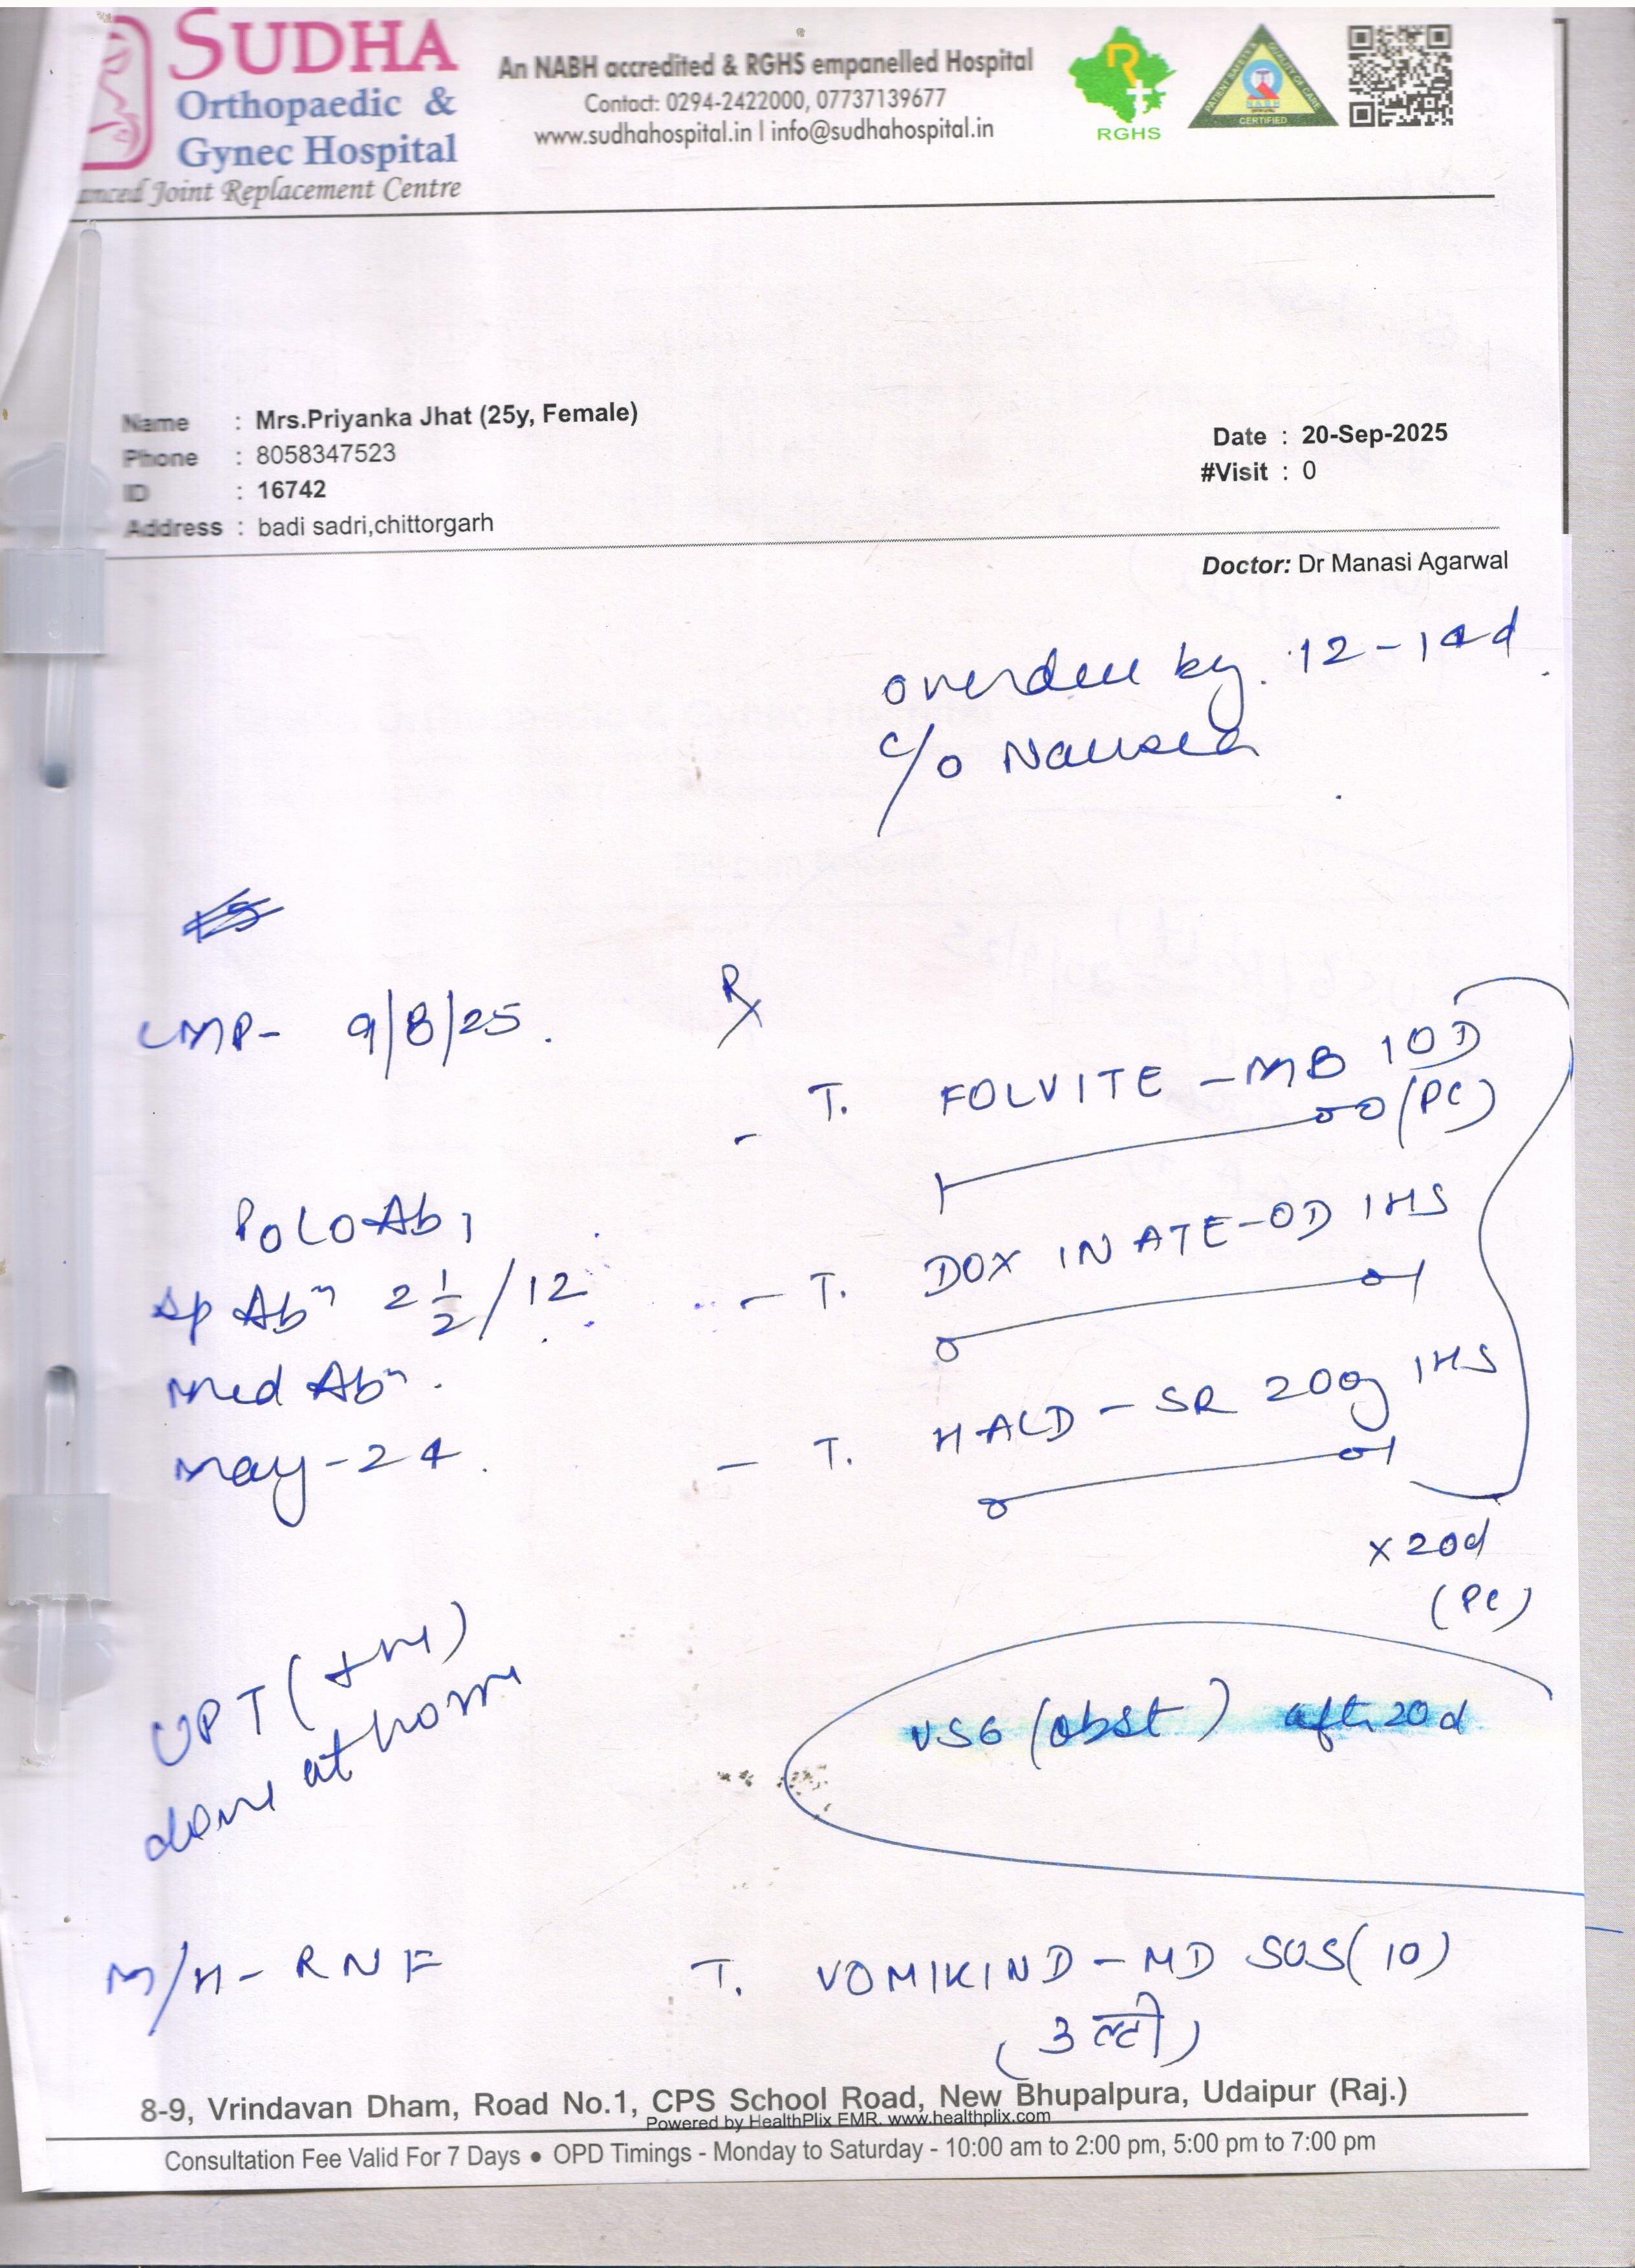 SUDHA
Orthopaedic &
Gynec Hospital
anced Joint Replacement Centre
An NABH accredited & RGHS empanelled Hospital
Contact: 0294-2422000, 07737139677
www.sudhahospital.in | info@sudhahospital.in
RGHS
PATIENT SAFETY & QUALITY OF CARE
NABH
CERTIFIED
Name : Mrs.Priyanka Jhat (25y, Female)
Phone : 8058347523
ID : 16742
Address : badi sadri,chittorgarh
Date : 20-Sep-2025
#Visit : 0
Doctor: Dr Manasi Agarwal
overdue by 12-14d
c/o Nausea
LMP- 9/8/25.
Rx
- T. FOLVITE -MB 1OD
(PC)
P0L0Ab1
Sp Abn 2 1/2 /12
Med Abn.
May-24.
- T. DOXINATE-OD 1HS
- T. HALD-SR 200g 1HS
x 20d
(PC)
UPT (+ve)
done at home
USG (obst) aftr 20d
M/H- RNF
T. VOMIKIND-MD SOS (10)
(उल्टी)
8-9, Vrindavan Dham, Road No.1, CPS School Road, New Bhupalpura, Udaipur (Raj.)
Powered by HealthPlix EMR. www.healthplix.com
Consultation Fee Valid For 7 Days • OPD Timings - Monday to Saturday - 10:00 am to 2:00 pm, 5:00 pm to 7:00 pm